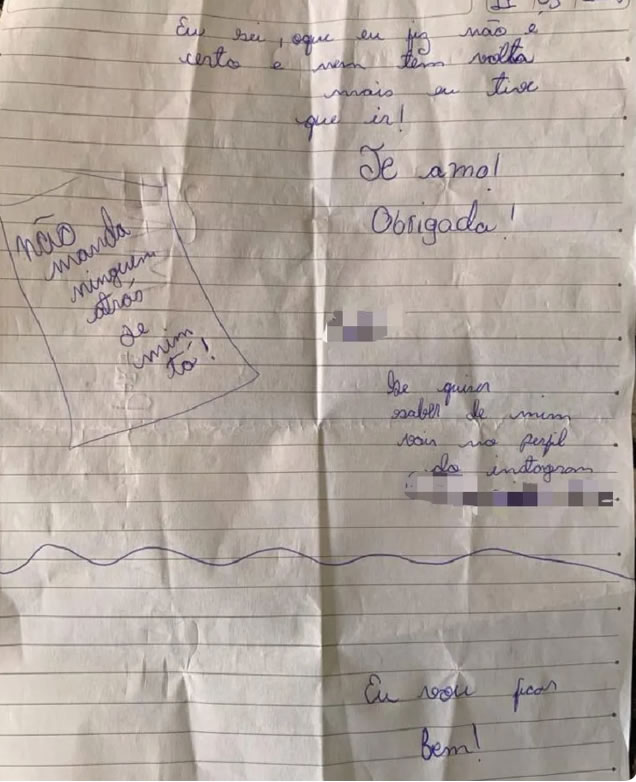 Eu sei, oque eu fiz não é
certo e nem tem volta
mais eu tive
que ir!
Te amo!
Obrigada!
não
manda
ninguem
atrás
de
mim
tá!
Se quiser
saber de mim
vai no perfil
do instagram
Eu vou ficar
Bem!